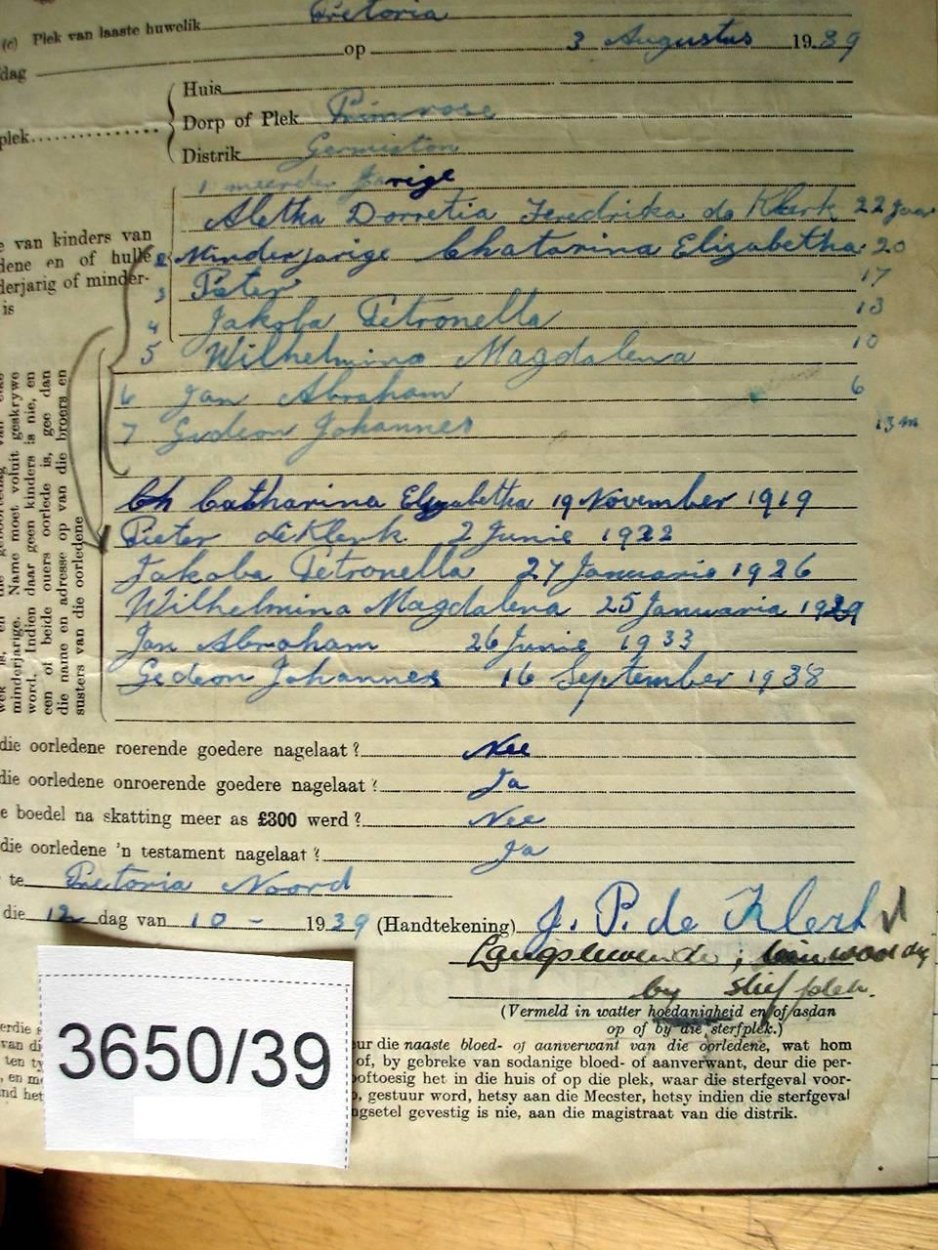 (c) Plek van laaste huwelik Pretoria
dag op 3 Augustus 1939
Huis
plek Dorp of Plek Primrose
Distrik Germiston
1 meerder Jarige
Aletha Dorretia Feredrika de Klerk 22 Jaar
e van kinders van
dene en of hulle
derjarig of minder-
is
2 Minderjarige Chatarina Elizabetha 20
3 Pieter 17
4 Jakoba Petronella 13
5 Wilhelmina Magdalena 10
6 Jan Abraham 6
7 Gideon Johannes 13m
minderjarige. Name moet voluit geskrywe
word. Indien daar geen kinders is nie, en
een of beide ouers oorlede is, gee dan
die name en adresse op van die broers en
susters van die oorledene
Ch Catharina Elizabetha 19 November 1919
Pieter de Klerk 2 Junie 1922
Jakoba Petronella 27 Januarie 1926
Wilhelmina Magdalena 25 Januaria 1929
Jan Abraham 26 Junie 1933
Gideon Johannes 16 September 1938
die oorledene roerende goedere nagelaat? Nee
die oorledene onroerende goedere nagelaat? Ja
e boedel na skatting meer as £300 werd? Nee
die oorledene 'n testament nagelaat? Ja
te Pretoria Noord
die 12 dag van 10 - 1939 (Handtekening) J. P. de Klerk
Langslewende;
by
(Vermeld in watter hoedanigheid en/of asdan
op of by die sterfplek.)
3650/39
eur die naaste bloed- of aanverwant van die oorledene, wat hom
of, by gebreke van sodanige bloed- of aanverwant, deur die per-
oftoesig het in die huis of op die plek, waar die sterfgeval voor-
, gestuur word, hetsy aan die Meester, hetsy indien die sterfgeval
ngsetel gevestig is nie, aan die magistraat van die distrik.